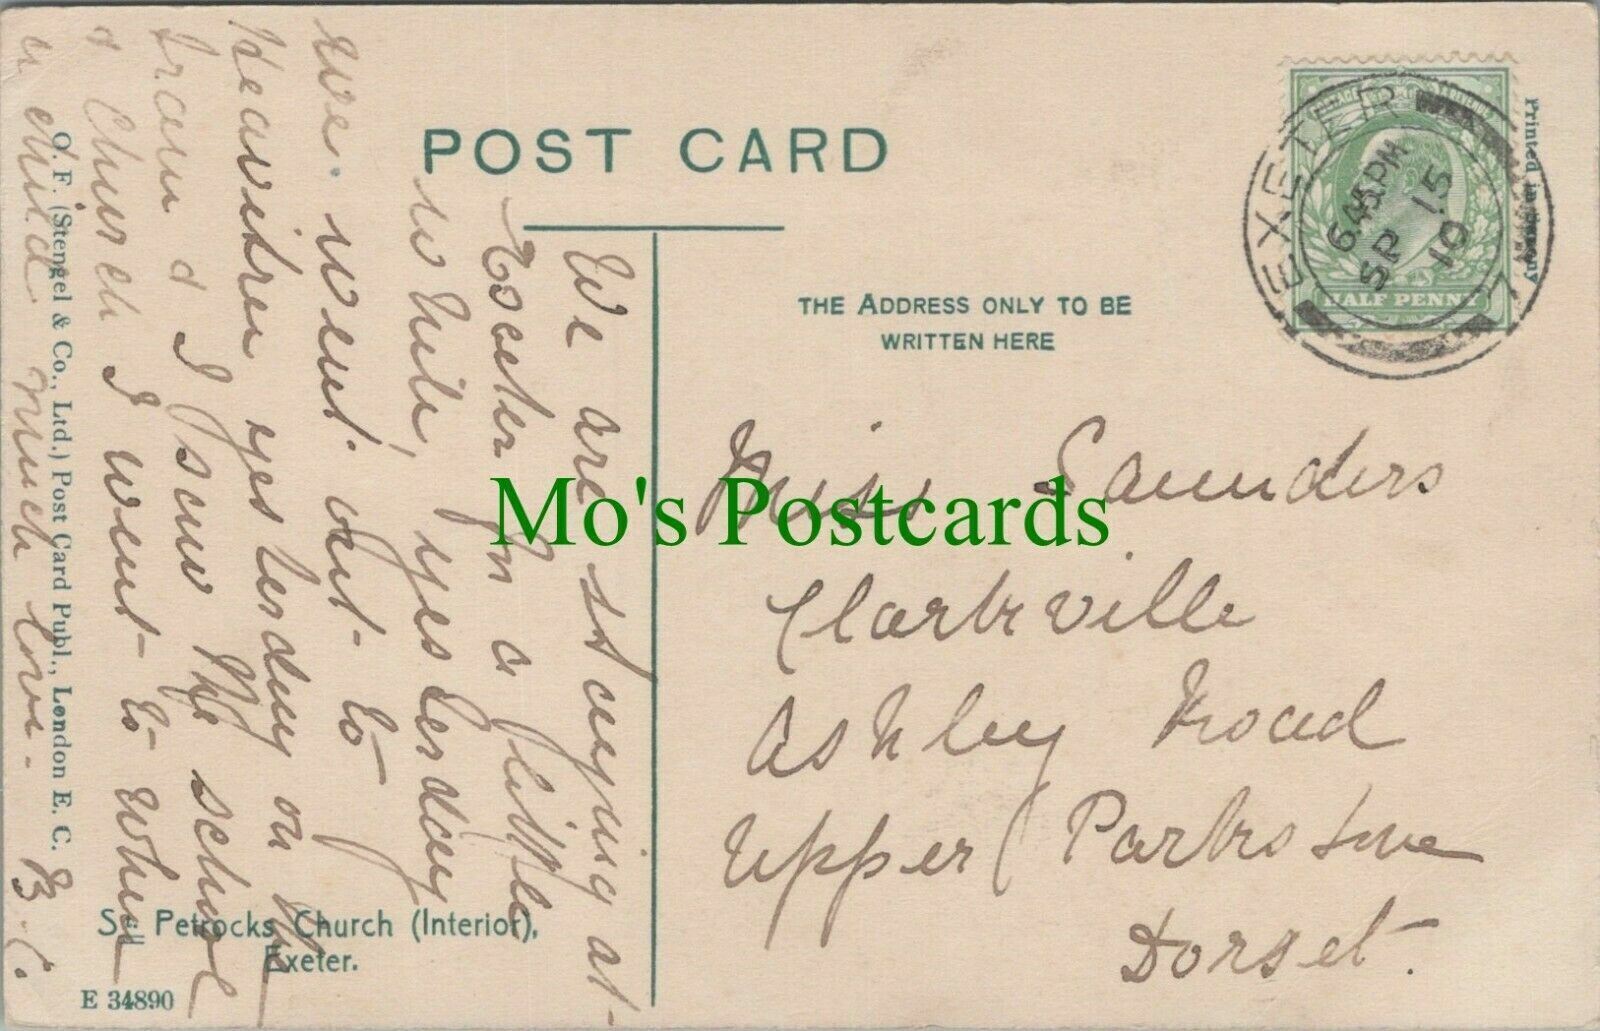 POST CARD
THE ADDRESS ONLY TO BE
WRITTEN HERE
Printed in
EXETER
6.45 PM
SP 15
10
POSTAGE REVENUE
HALF PENNY
Miss Saunders
Clarkville
Ashley Road
Upper Parkstone
Dorset.
We are staying at
Exeter for a little
while, yesterday
we went out to
Heavitree yesterday on the
tram & I saw the school
& Church I went to when
a child Much love. B.C.
O. F. (Stengel & Co., Ltd.) Post Card Publ., London E. C.
St Petrocks Church (Interior),
Exeter.
E 34890
Mo's Postcards